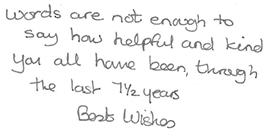 words are not enough to
say how helpful and kind
you all have been, through
the last 7½ years
Best Wishes